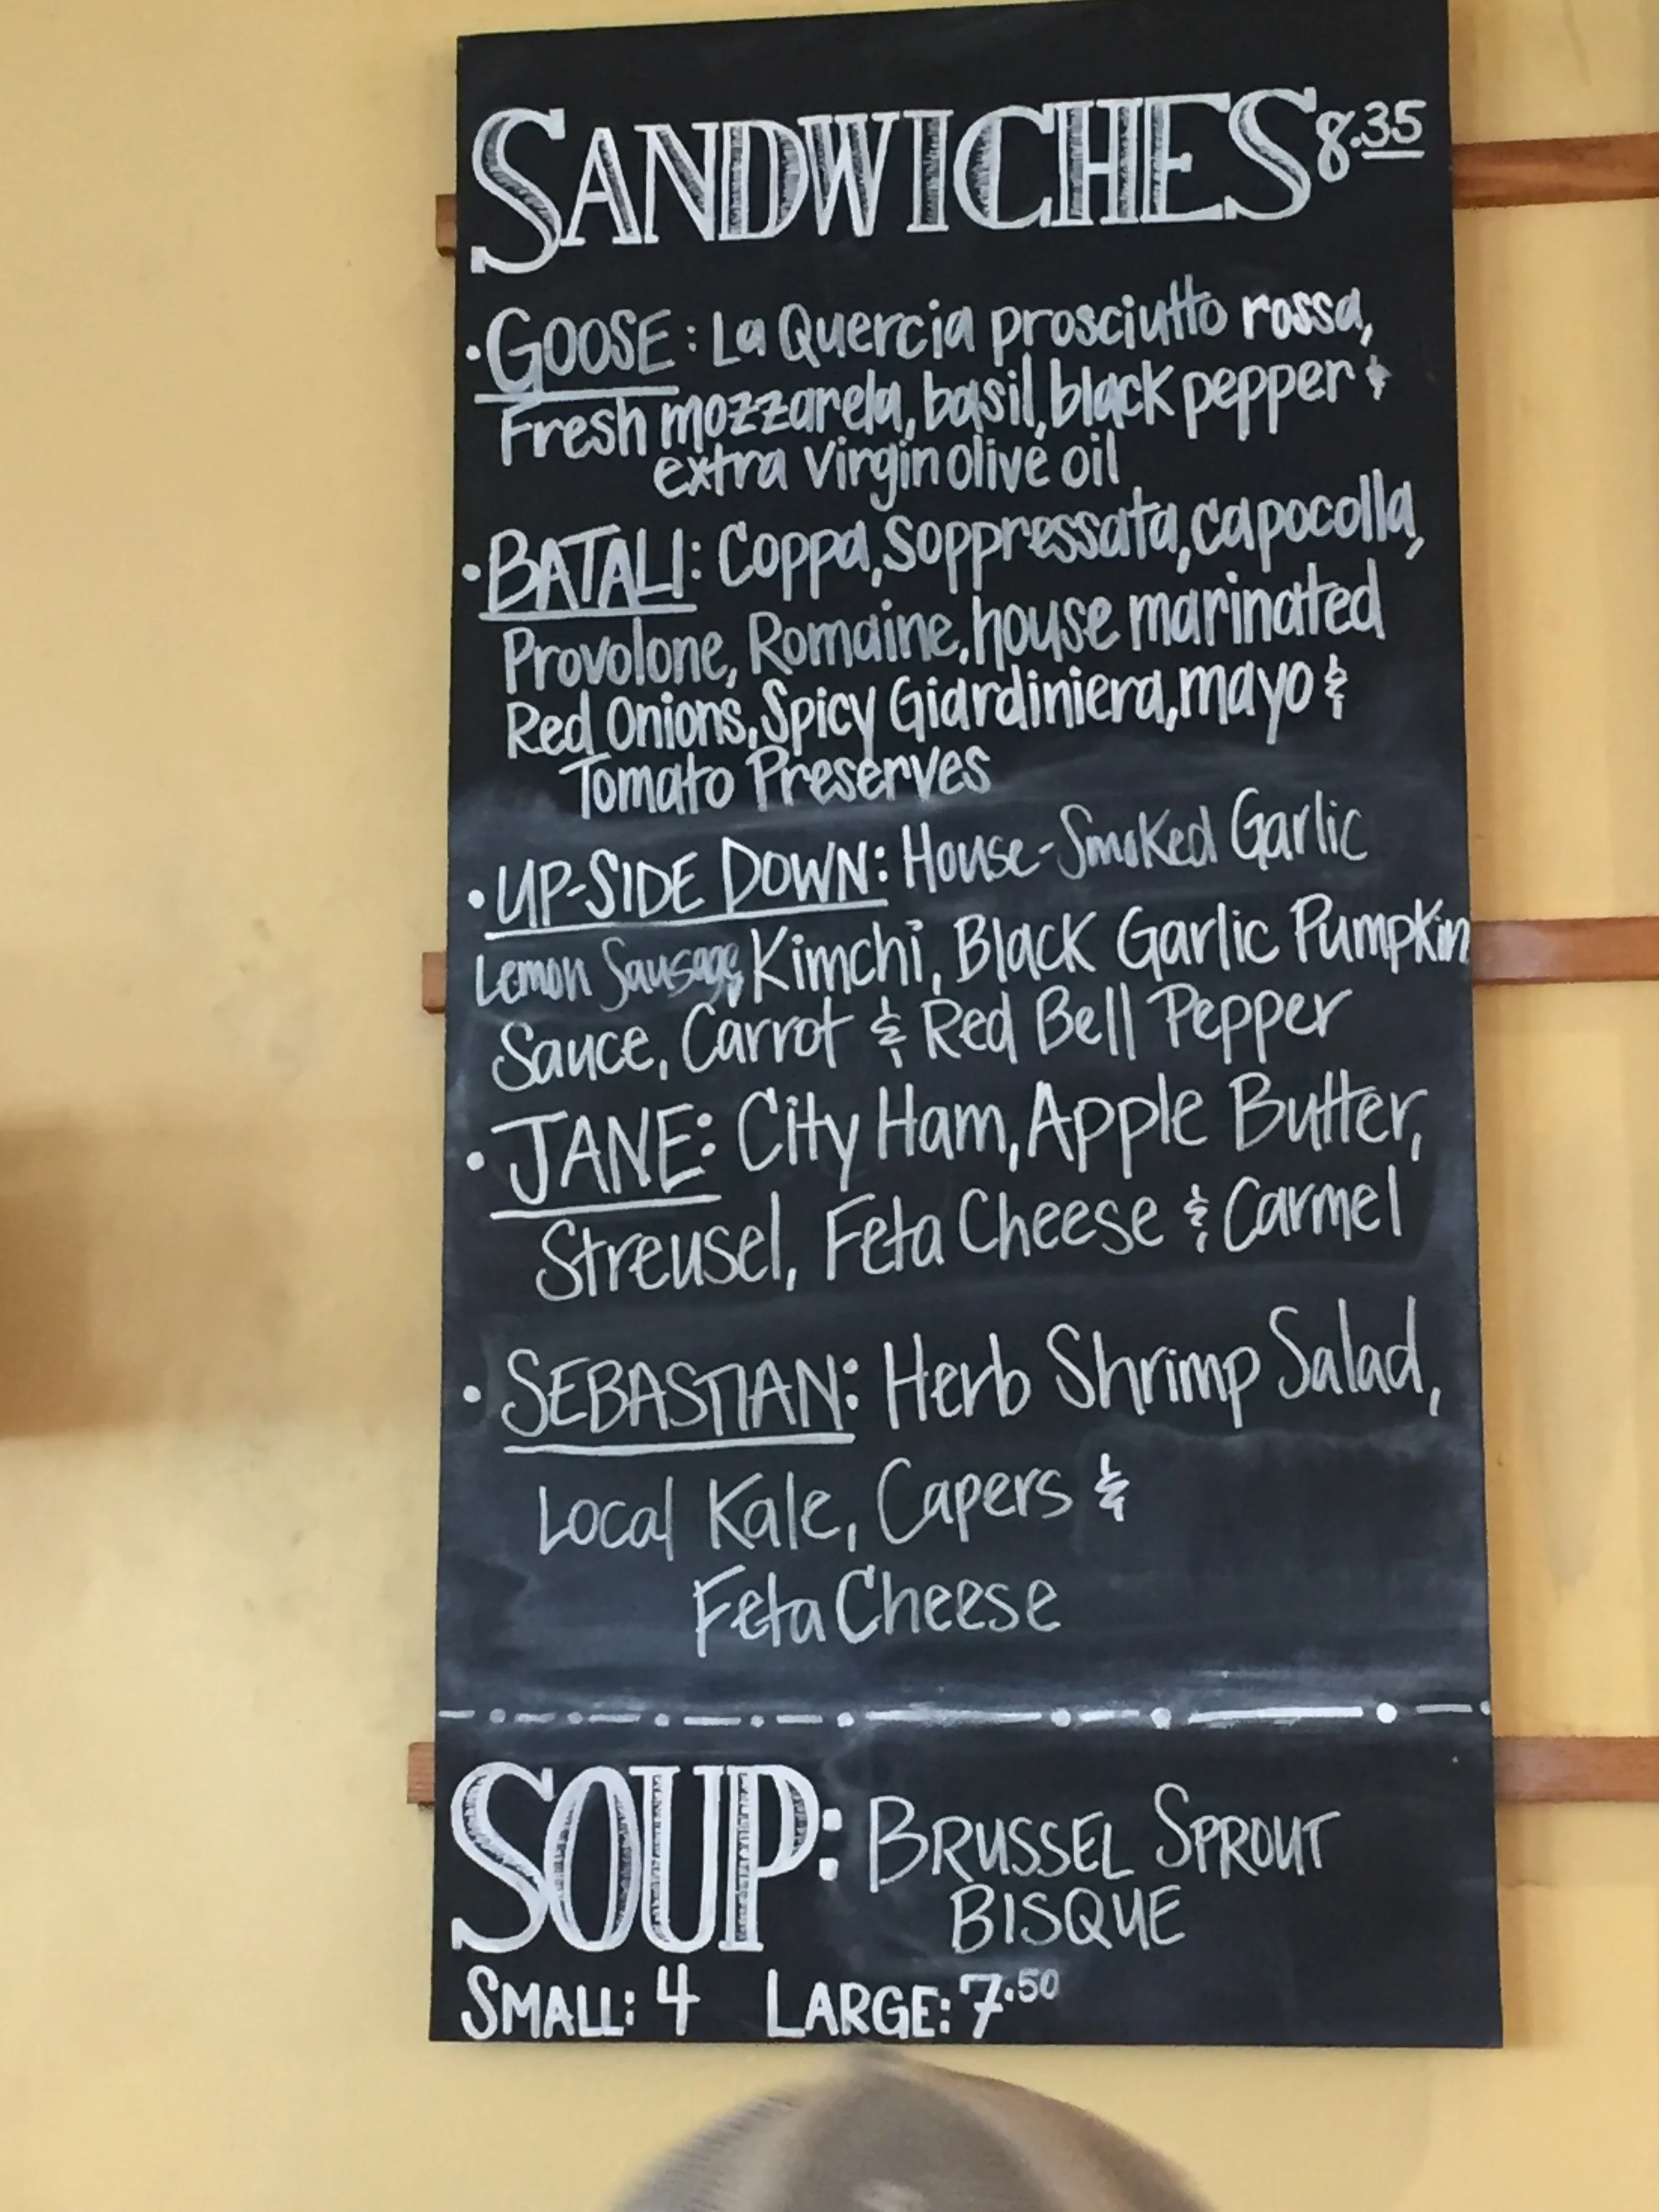 SANDWICHES 8.35
• GOOSE: La Quercia prosciutto rossa,
Fresh mozzarela, basil, black pepper &
extra Virgin olive oil
• BATALI: Coppa, Soppressata, capocolla,
Provolone, Romaine, house marinated
Red Onions, Spicy Giardiniera, mayo &
Tomato Preserves
• UP-SIDE DOWN: House-Smoked Garlic
Lemon Sausage, Kimchi, Black Garlic Pumpkin
Sauce, Carrot & Red Bell Pepper
• JANE: City Ham, Apple Butter,
Streusel, Feta Cheese & Carmel
• SEBASTIAN: Herb Shrimp Salad,
Local Kale, Capers &
Feta Cheese
SOUP: BRUSSEL SPROUT
BISQUE
SMALL: 4 LARGE: 7.50